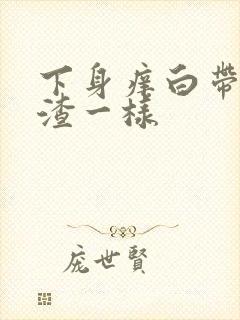 下身痒白带
渣一样
庞世贤